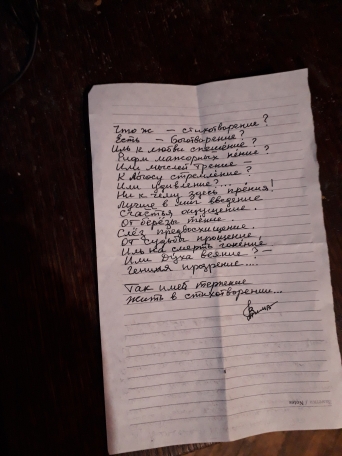 Что ж – стихотворение?
Есть – Боготворение?
Иль к любви снешение?
Рифм мажорных пение?
Или мыслей трение –
К Логосу стремление?
Или удивление?....
Ни к чему здесь прения!
Лучше в миг введение
Счастья ощущение.
От берёзы тение.
Слёз предвосхищение.
От судьбы прощение,
Иль на смерть гонение
Или Духа веяние? –
Гения прозрение....
Так имей терпение
Жить в стихотворении...